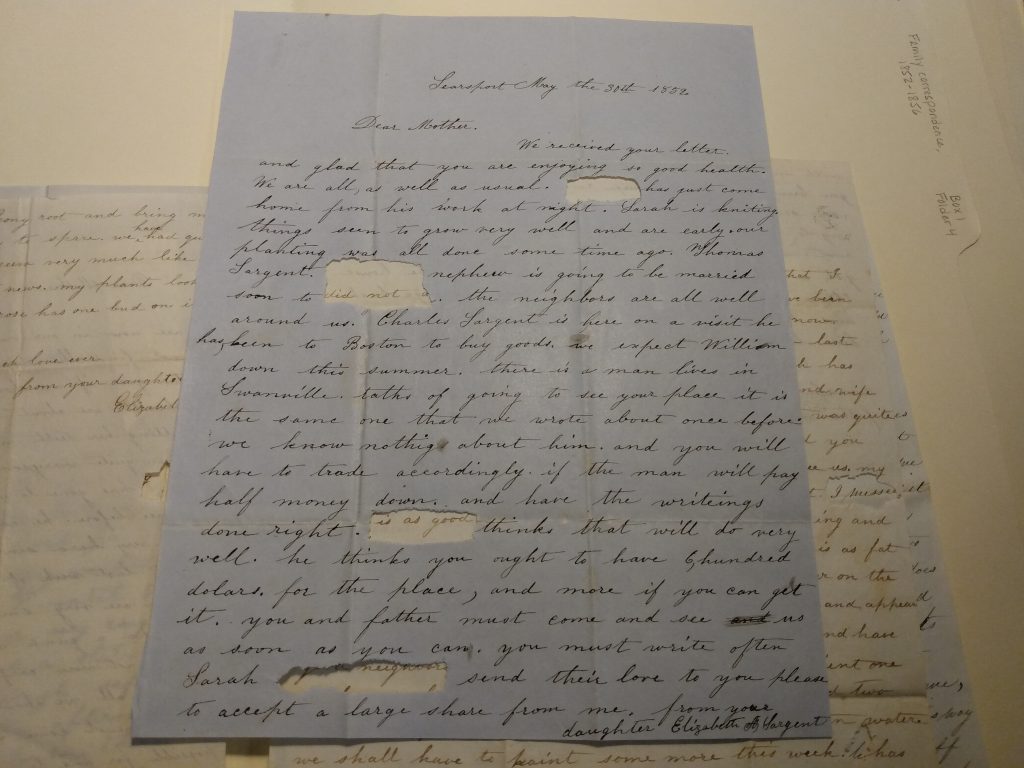 Searsport May the 30th 1852
Dear Mother.
We received your letter.
and glad that you are enjoying so good health.
We are all, as well as usual. has just come
home from his work at night. Sarah is kniting
things seen to grow very well and are early. our
planting was all done some time ago. Thomas
Sargent. nephew is going to be married
soon to did not. the neighbors are all well
around us. Charles Sargent is here on a visit he
has been to Boston to buy goods. we expect William
down this summer. there is a man lives in
Swanville. talks of going to see your place it is
the same one that we wrote about once before.
we know nothig about him. and you will
have to trade accordingly. if the man will pay
half money down. and have the writeings
done right. is as good thinks that will do very
well. he thinks you ought to have 6 hundred
dolars. for the place, and more if you can get
it. you and father must come and see and us
as soon as you can. you must write often
Sarah neighbors send their love to you please
to accept a large share from me. from your
daughter Elizabeth A Sargent
Family correspondence,
1852-1856
Box 1
Folder 4
root and bring
to spare. we have had
very much like
news. my plants look
rose has one bud on
love ever
from your daughter
Elizabet
that I
been
now
last
has
wife
was quite
you
us. my
I
ing and
is as fat
on the
and appear
and have
one
two
water
we shall have to paint some more this week. has